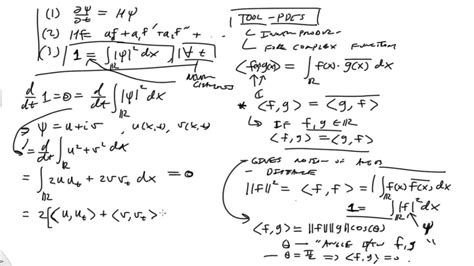 (1) ∂ψ/∂t = Hψ
(2) Hf = af + a₁f' + a₂f'' +
(3) 1 = ∫_ℝ |ψ|² dx, ∀ t
d/dt 1 = 0 = d/dt ∫_ℝ |ψ|² dx
ψ = u + iv, u(x,t), v(x,t)
= d/dt ∫_ℝ u² + v² dx
= ∫_ℝ 2uu_t + 2vv_t dx = 0
= 2[⟨u, u_t⟩ + ⟨v, v_t⟩
TOOL - PDES
INNER PRODUCT
FOR COMPLEX FUNCTION
⟨f, g⟩ = ∫_ℝ f(x) · \overline{g(x)} dx
ℂ
* ⟨f, g⟩ = \overline{⟨g, f⟩}
IF f, g ∈ ℝ
⟨f, g⟩ = ⟨g, f⟩
GIVES NOTION OF
- DISTANCE
||f||² = ⟨f, f⟩ = ∫_ℝ f(x) \overline{f(x)} dx
1 = ∫_ℝ |f|² dx
ψ
⟨f, g⟩ = ||f|| ||g|| cos(θ)
θ - "ANGLE BTW f, g"
- θ = π/2 => ⟨f, g⟩ = 0